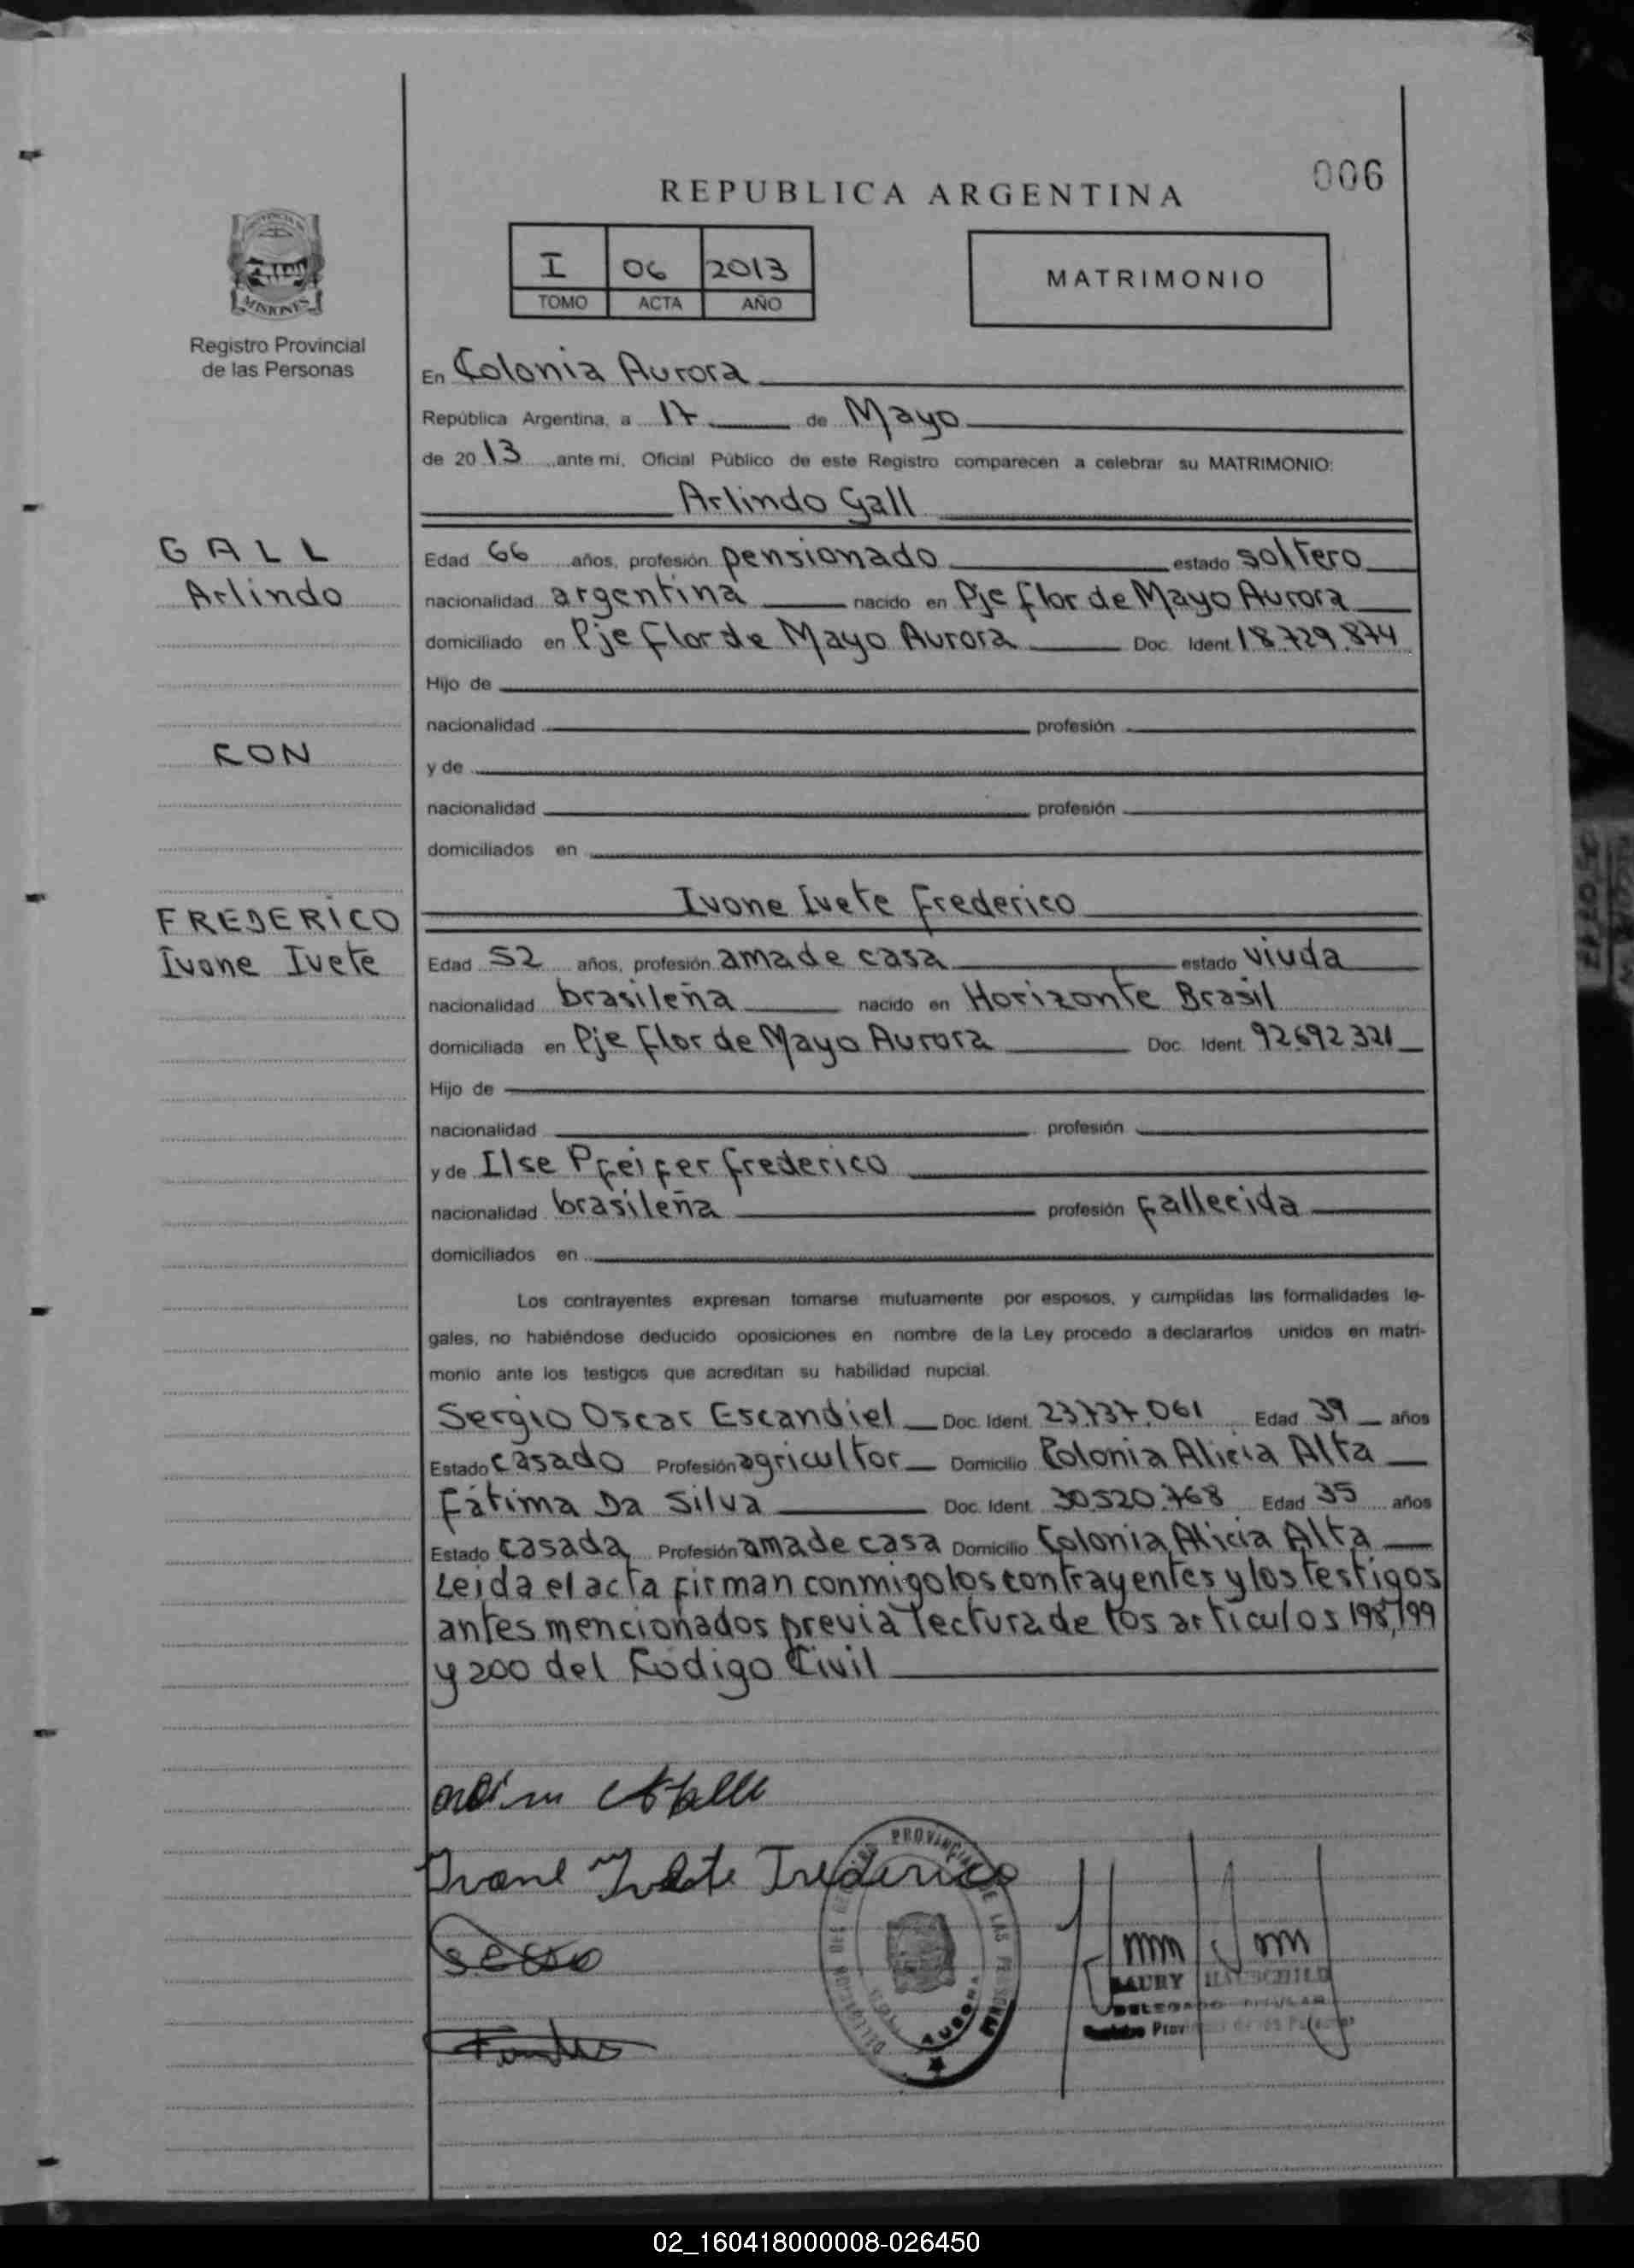 006
REPUBLICA ARGENTINA
I 06 2013
TOMO ACTA AÑO
MATRIMONIO
MISIONES
Registro Provincial
de las Personas
En Colonia Aurora
República Argentina, a 17 de Mayo
de 2013 ante mi, Oficial Público de este Registro comparecen a celebrar su MATRIMONIO:
Arlindo Gall
GALL
Arlindo
Edad 66 años, profesión pensionado estado soltero
nacionalidad argentina nacido en Pje Flor de Mayo Aurora
domiciliado en Pje Flor de Mayo Aurora Doc. Ident 18.729.874
Hijo de
nacionalidad profesión
CON
y de
nacionalidad profesión
domiciliados en
Ivone Ivete Frederico
FREDERICO
Ivone Ivete
Edad 52 años, profesión ama de casa estado viuda
nacionalidad brasileña nacido en Horizonte Brasil
domiciliada en Pje Flor de Mayo Aurora Doc. Ident. 92692321
Hijo de
nacionalidad profesión
y de Ilse Pfeifer Frederico
nacionalidad brasileña profesión fallecida
domiciliados en
Los contrayentes expresan tomarse mutuamente por esposos, y cumplidas las formalidades le-
gales, no habiéndose deducido oposiciones en nombre de la Ley procedo a declararlos unidos en matri-
monio ante los testigos que acreditan su habilidad nupcial.
Sergio Oscar Escandiel Doc. Ident. 23.737.061 Edad 39 años
Estado casado Profesión agricultor Domicilio Colonia Alicia Alta
Fátima Da Silva Doc. Ident. 30.520.768 Edad 35 años
Estado casada Profesión ama de casa Domicilio Colonia Alicia Alta
Leida el acta firman conmigo los contrayentes y los testigos
antes mencionados previa lectura de los articulos 198, 199
y 200 del Codigo Civil
Ivone Ivete Frederico
PROVINCIAL DE LAS PERSONAS
AURORA
HAUSCHILD
DELEGADO TITULAR
02_160418000008-026450